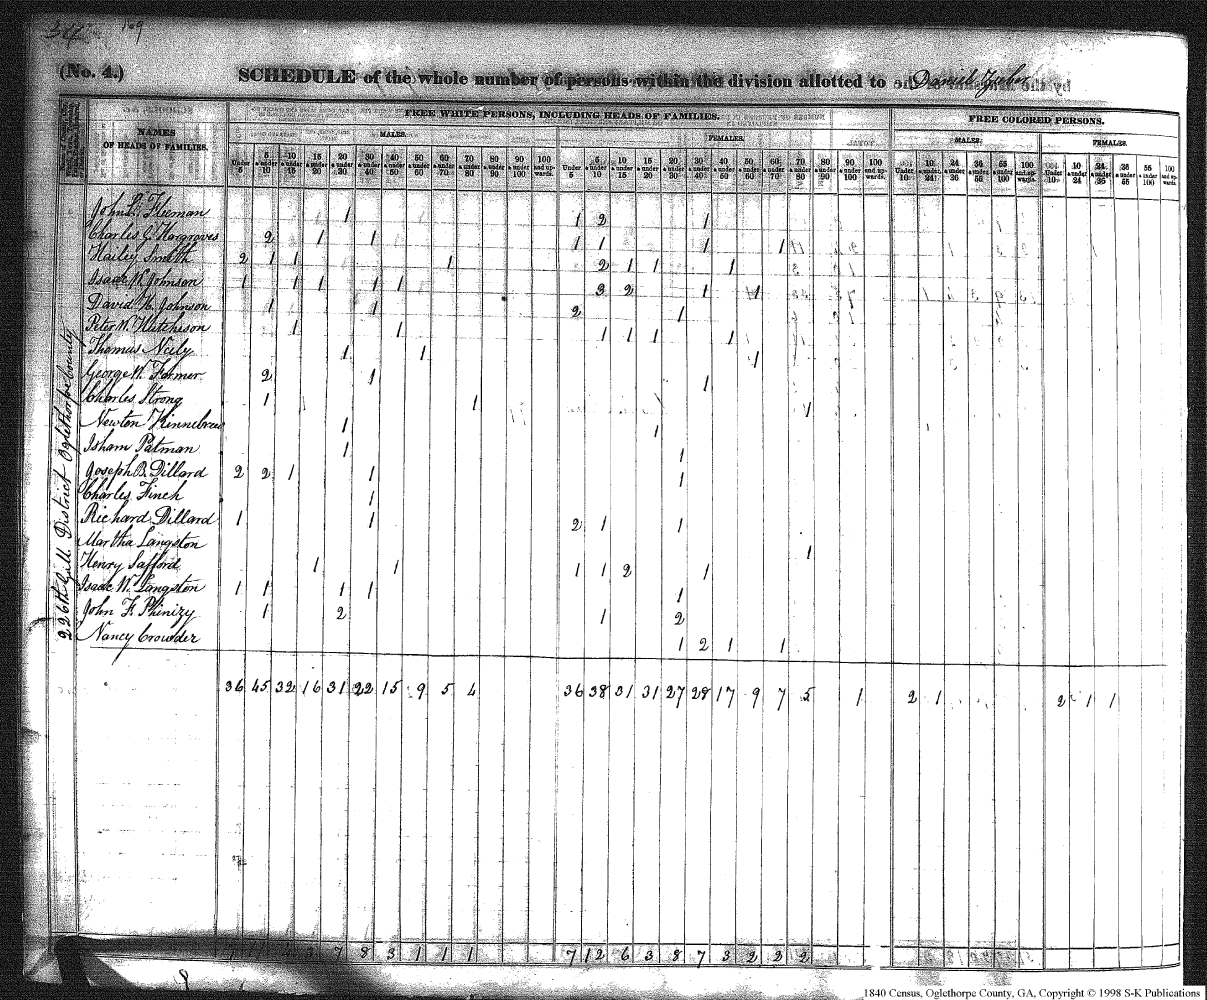 34 109
(No. 4.) SCHEDULE of the whole number of persons within the division allotted to Daniel Zuber
NAMES OF HEADS OF FAMILIES.
FREE WHITE PERSONS, INCLUDING HEADS OF FAMILIES. FREE COLORED PERSONS.
MALES. FEMALES. MALES. FEMALES.
Under 5 5 & under 10 10 & under 15 15 & under 20 20 & under 30 30 & under 40 40 & under 50 50 & under 60 60 & under 70 70 & under 80 80 & under 90 90 & under 100 100 and upwards. Under 5 5 & under 10 10 & under 15 15 & under 20 20 & under 30 30 & under 40 40 & under 50 50 & under 60 60 & under 70 70 & under 80 80 & under 90 90 & under 100 100 and upwards. Under 10 10 & under 24 24 & under 36 36 & under 55 55 & under 100 100 and upwards. Under 10 10 & under 24 24 & under 36 36 & under 55 55 & under 100 100 and upwards.
226th Gill. District Oglethorpe County
1 1 2 1
Charles G. Hargroves 2 1 1 1 1 1 1
Hailey Smith 2 1 1 1 2 1 1 1
Isaac W. Johnson 1 1 1 1 1 3 2 1 1
David W. Johnson 1 1 2 1
Peter W. Hutchison 1 1 1 1 1 1
Thomas Neely 1 1 1
George W. Farmer 2 1 1
Charles Strong 1 1 1
Newton Hinnebrew 1 1
Isham Patman 1 1
Joseph B. Dillard 2 2 1 1 1
Charles Finch 1
Richard Dillard 1 1 2 1 1
Martha Langston 1
Henry Safford 1 1 1 1 2 1
Isaac W. Langston 1 1 1 1 1
John F. Phinizy 1 2 1 2
Nancy Crowder 1 2 1 1
36 45 32 16 31 22 15 9 5 4 36 38 31 31 27 28 17 9 7 5 1 2 1 2 1 1
7 8 3 1 1 1 7 12 6 3 8 7 3 2 2 2
1840 Census, Oglethorpe County, GA, Copyright © 1998 S-K Publications